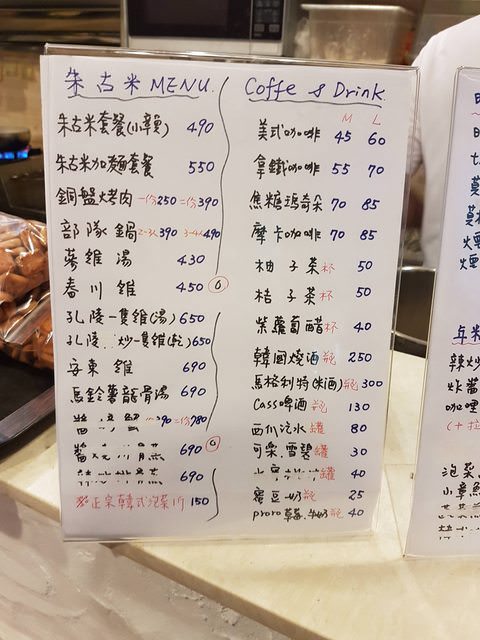 朱古米 MENU.
朱古米套餐(小辣) 490
朱古米加麵套餐 550
銅盤烤肉 一份250 二份390
部隊鍋 2-3人390 3-4人490
蔘雞湯 430
春川雞 450
孔陵一隻雞(湯) 650
孔陵 炒一隻雞(乾) 650
安東雞 690
馬鈴薯龍骨湯 690
二份780
690
690
正宗韓式泡菜1斤 150
Coffe & Drink.
M L
美式咖啡 45 60
拿鐵咖啡 55 70
焦糖瑪奇朵 70 85
摩卡咖啡 70 85
柚子茶 杯 50
桔子茶 杯 50
紫蘿蔔醋 杯 40
韓國燒酒 瓶 250
馬格利特(米酒) 瓶 300
Cass啤酒 瓶 130
西川汽水 罐 80
可樂.雪碧 罐 30
罐 40
蜜豆奶 瓶 25
Proro草莓.牛奶 瓶 40
辣炒
炸醬
咖哩
泡菜
小章魚